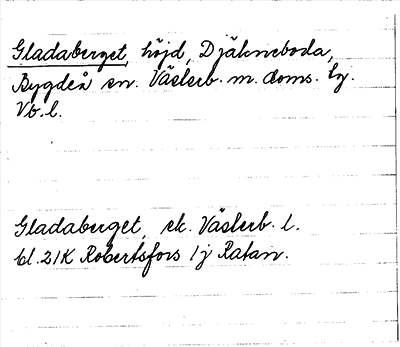 Gladaberget, höjd, Djäkneboda,
Bygdeå sn. Västerb. m. doms. hj.
Vb. l.
Gladaberget, ek. Västerb. l.
bl. 21K Robertsfors 1j Ratan.